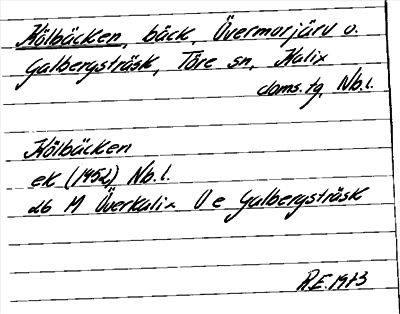 Kölbäcken, bäck, Övermorjärv o.
Galbergsträsk, Töre sn, Kalix
doms.tg, Nb.l.
Kölbäcken
ek (1952) Nb.l.
db M Överkalix V e Galbergsträsk
R.E. 1973